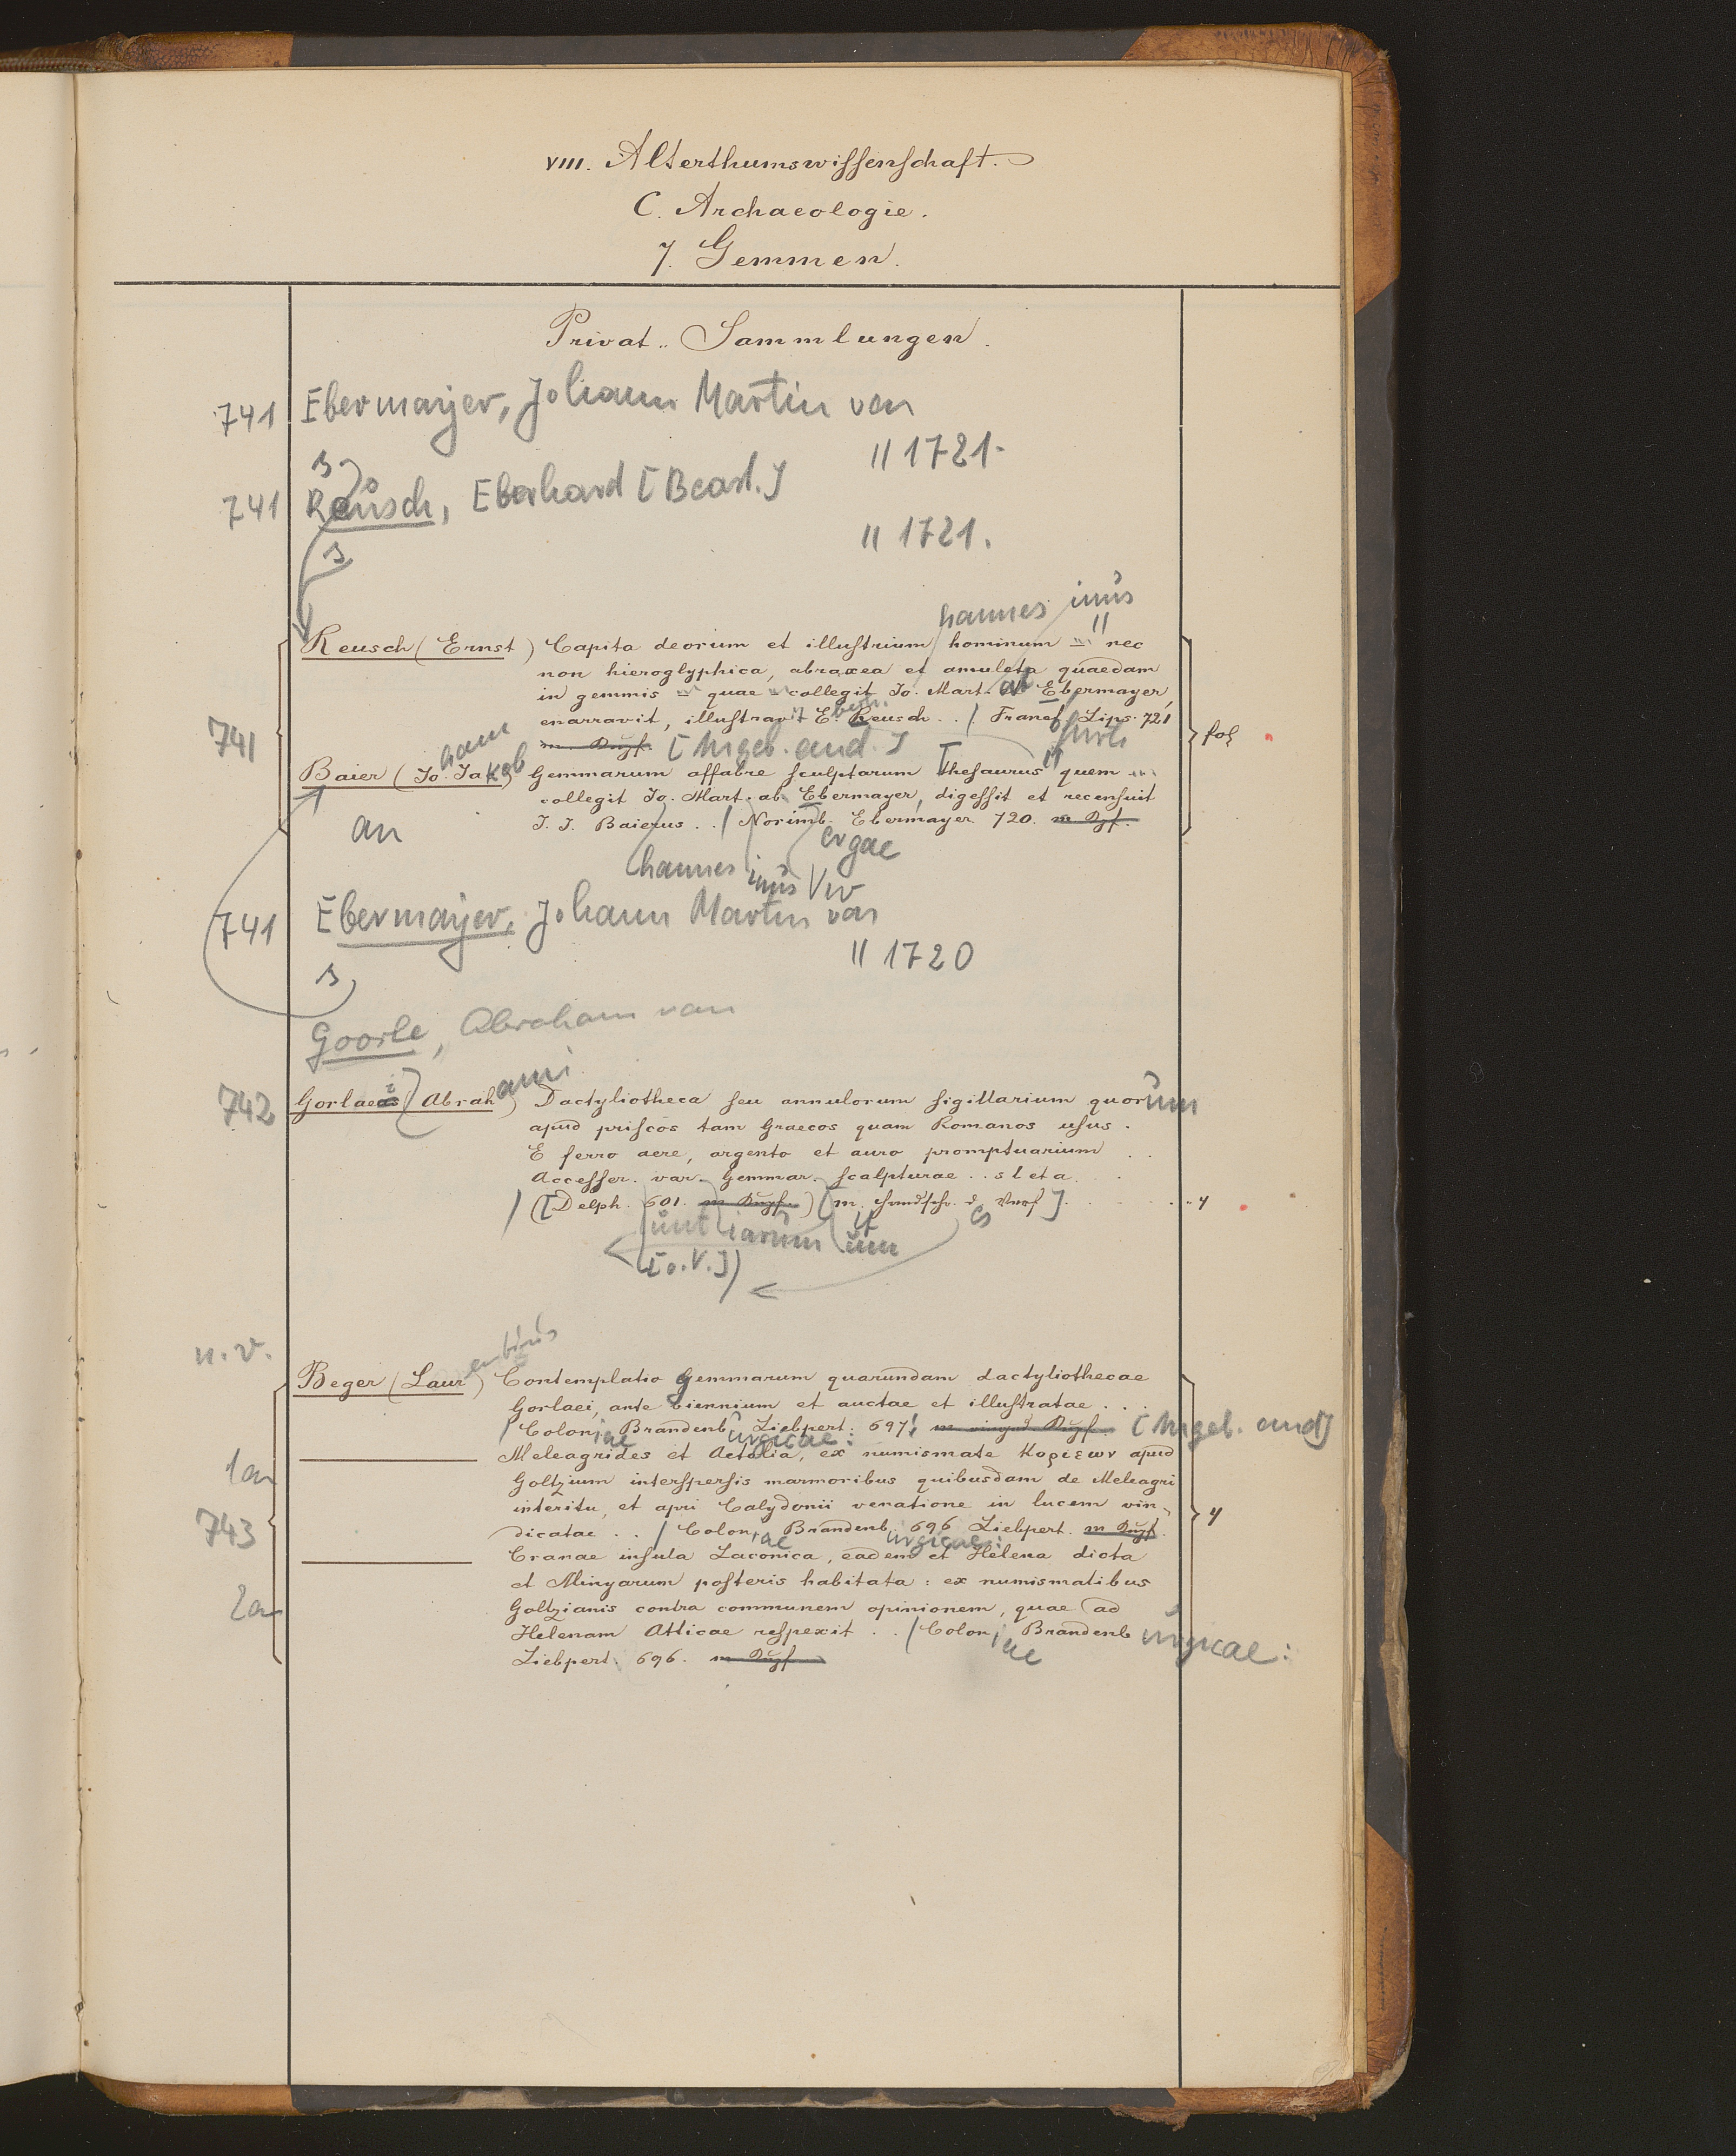 VIII. Alterthumswissenschaft.
C. Archaeologie.
7. Gemmen.
Privat-Sammlungen.
741 Ebermayer, Johann Martin von
" 1721.
741 Reusch, Eberhard [Bearb.]
" 1721.
hannes inus
Reusch (Ernst) Capita deorum et illustrium hominum ... nec
non hieroglyphica, abraxea et amuleta quaedam
in gemmis ... quae ... collegit Jo. Mart. ab Ebermayer,
enarravit, illustravit E. Reusch .. / Francf. Lips. 721
m. Kupf. [Angeb. and.]
741 fol
hann
Baier (Jo. Jakob) Gemmarum affabre sculptarum Thesaurus quem ...
collegit Jo. Mart. ab Ebermayer, digessit et recensuit
J. J. Baierus .. / Norimb. Ebermayer 720. m. Kpf.
an
hannes inus ergae
741 Ebermayer, Johann Martin von
" 1720
Goorle, Abraham van
742 Gorlaei (Abrahami) Dactyliotheca seu annulorum sigillarium quorum
apud priscos tam Graecos quam Romanos usus.
E ferro aere, argento et auro promptuarium . .
Accesser. var. Gemmar. scalpturae .. s l et a. . .
/ ([Delph. 601. m. Kupf.) (m. handschr. ]. 4
unt iarum um es
[o.V.])
n.v.
Beger (Laurentius) Contemplatio Gemmarum quarundam dactyliothecae
Gorlaei, ante biennium et auctae et illustratae . . .
/ Coloniae Brandenburgicae: Liebpert. 697. Kupf. [Angeb. and]
1an Meleagrides et Aetolia, ex numismate Κυριεων apud
Goltzium interspersis marmoribus quibusdam de Meleagri
interitu, et apri Calydonii venatione in lucem vin-
743 dicatae . . / Coloniae Brandenburgicae: 696 Liebpert. m Kupf. 4
Cranae insula Laconica, eadem et Helena dicta
et Minyarum posteris habitata: ex numismatibus
2an Goltzianis contra communem opinionem, quae ad
Helenam Atticae respexit . . / Coloniae Brandenburgicae:
Liebpert. 696. m Kupf